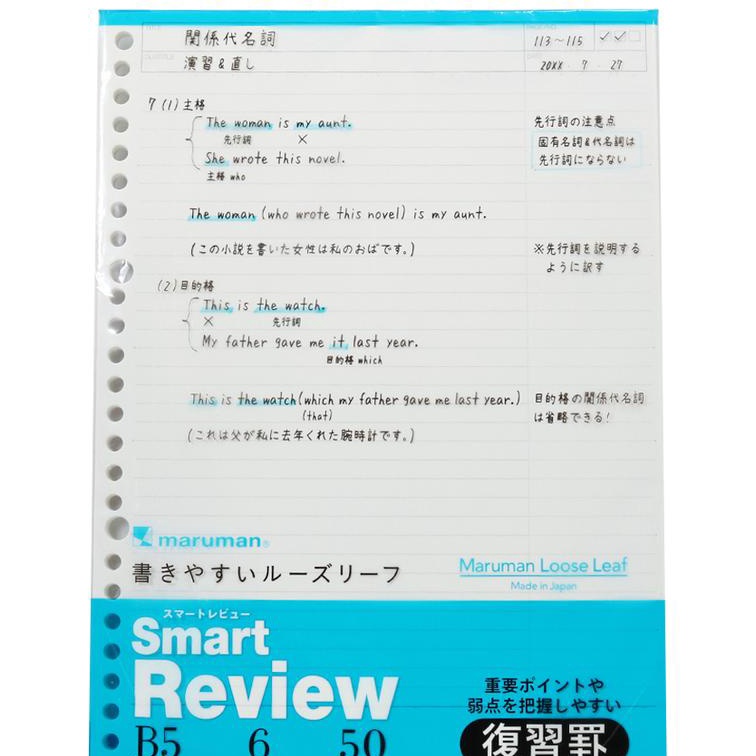 TITLE
関係代名詞
113～115 ✓ ✓
演習&直し
20XX・7・27
7 (1) 主格
The woman is my aunt.
先行詞の注意点
先行詞 ×
固有名詞&代名詞は
She wrote this novel.
先行詞にならない
主格 who
The woman (who wrote this novel) is my aunt.
(この小説を書いた女性は私のおばです。)
※先行詞を説明する
ように訳す
(2) 目的格
This is the watch.
× 先行詞
My father gave me it last year.
目的格 which
This is the watch (which my father gave me last year.)
目的格の関係代名詞
(that)
は省略できる!
(これは父が私に去年くれた腕時計です。)
maruman®
書きやすいルーズリーフ
Maruman Loose Leaf
Made in Japan
スマートレビュー
Smart
Review
重要ポイントや
弱点を把握しやすい
B5 6 50
復習罫